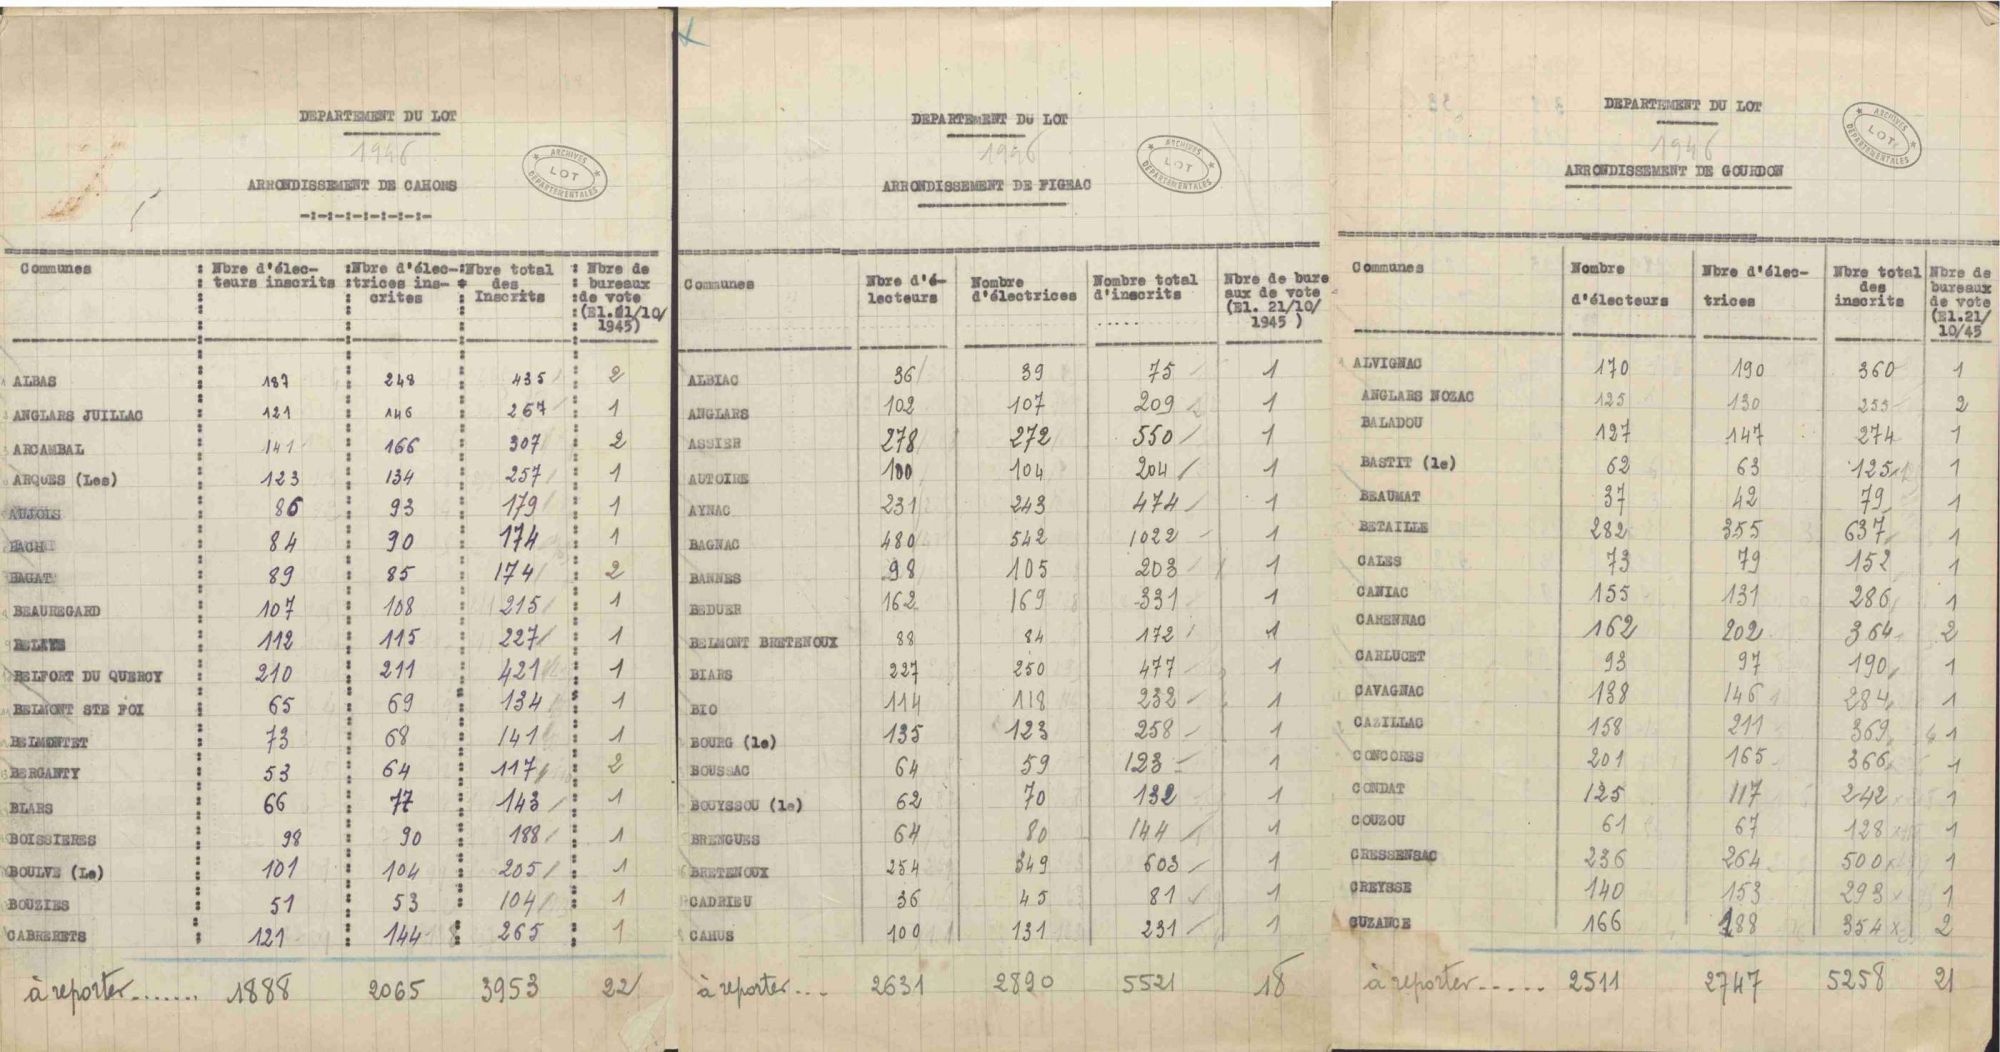 DEPARTEMENT DU LOT
1946
ARRONDISSEMENT DE CAHORS
ARCHIVES
LOT
DEPARTEMENTALES
-:-:-:-:-:-:-:-
Communes : Nbre d'élec- : Nbre d'élec- : Nbre total : Nbre de
teurs inscrits : trices ins- : des : bureaux
crites : Inscrits : de vote
(El.21/10/
1945)
ALBAS 187 248 435 2
ANGLARS JUILLAC 121 146 267 1
ARCAMBAL 141 166 307 2
ARQUES (Les) 123 134 257 1
AUJOLS 86 93 179 1
BACH 84 90 174 1
BAGAT 89 85 174 2
BEAUREGARD 107 108 215 1
BELAYE 112 115 227 1
BELFORT DU QUERCY 210 211 421 1
BELMONT STE FOI 65 69 134 1
BELMONTET 73 68 141 1
BERGANTY 53 64 117 2
BLARS 66 77 143 1
BOISSIERES 98 90 188 1
BOULVE (Le) 101 104 205 1
BOUZIES 51 53 104 1
CABRERETS 121 144 265 1
à reporter....... 1888 2065 3953 22
DEPARTEMENT DU LOT
1946
ARRONDISSEMENT DE FIGEAC
ARCHIVES
LOT
DEPARTEMENTALES
Communes Nbre d'é- Nombre Nombre total Nbre de bure
lecteurs d'électrices d'inscrits aux de vote
(El. 21/10/
..... 1945 )
ALBIAC 36 39 75 1
ANGLARS 102 107 209 1
ASSIER 278 272 550 1
AUTOIRE 100 104 204 1
AYNAC 231 243 474 1
BAGNAC 480 542 1022 1
BANNES 98 105 203 1
BEDUER 162 169 331 1
BELMONT BRETENOUX 88 84 172 1
BIARS 227 250 477 1
BIO 114 118 232 1
BOURG (le) 135 123 258 1
BOUSSAC 64 59 123 1
BOUYSSOU (le) 62 70 132 1
BRENGUES 64 80 144 1
BRETENOUX 254 349 603 1
CADRIEU 36 45 81 1
CAHUS 100 131 231 1
à reporter... 2631 2890 5521 18
DEPARTEMENT DU LOT
1946
ARRONDISSEMENT DE GOURDON
ARCHIVES
LOT
DEPARTEMENTALES
Communes Nombre Nbre d'élec- Nbre total Nbre de
d'électeurs trices des bureaux
inscrits de vote
(El.21/
10/45
ALVIGNAC 170 190 360 1
ANGLARS NOZAC 125 130 255 2
BALADOU 127 147 274 1
BASTIT (le) 62 63 125 1
BEAUMAT 37 42 79 1
BETAILLE 282 355 637 1
CALES 73 79 152 1
CANIAC 155 131 286 1
CARENNAC 162 202 364 2
CARLUCET 93 97 190 1
CAVAGNAC 138 146 284 1
CAZILLAC 158 211 369 1
CONCORES 201 165 366 1
CONDAT 125 117 242 1
COUZOU 61 67 128 1
CRESSENSAC 236 264 500 1
CREYSSE 140 153 293 1
CUZANCE 166 188 354 2
à reporter..... 2511 2747 5258 21